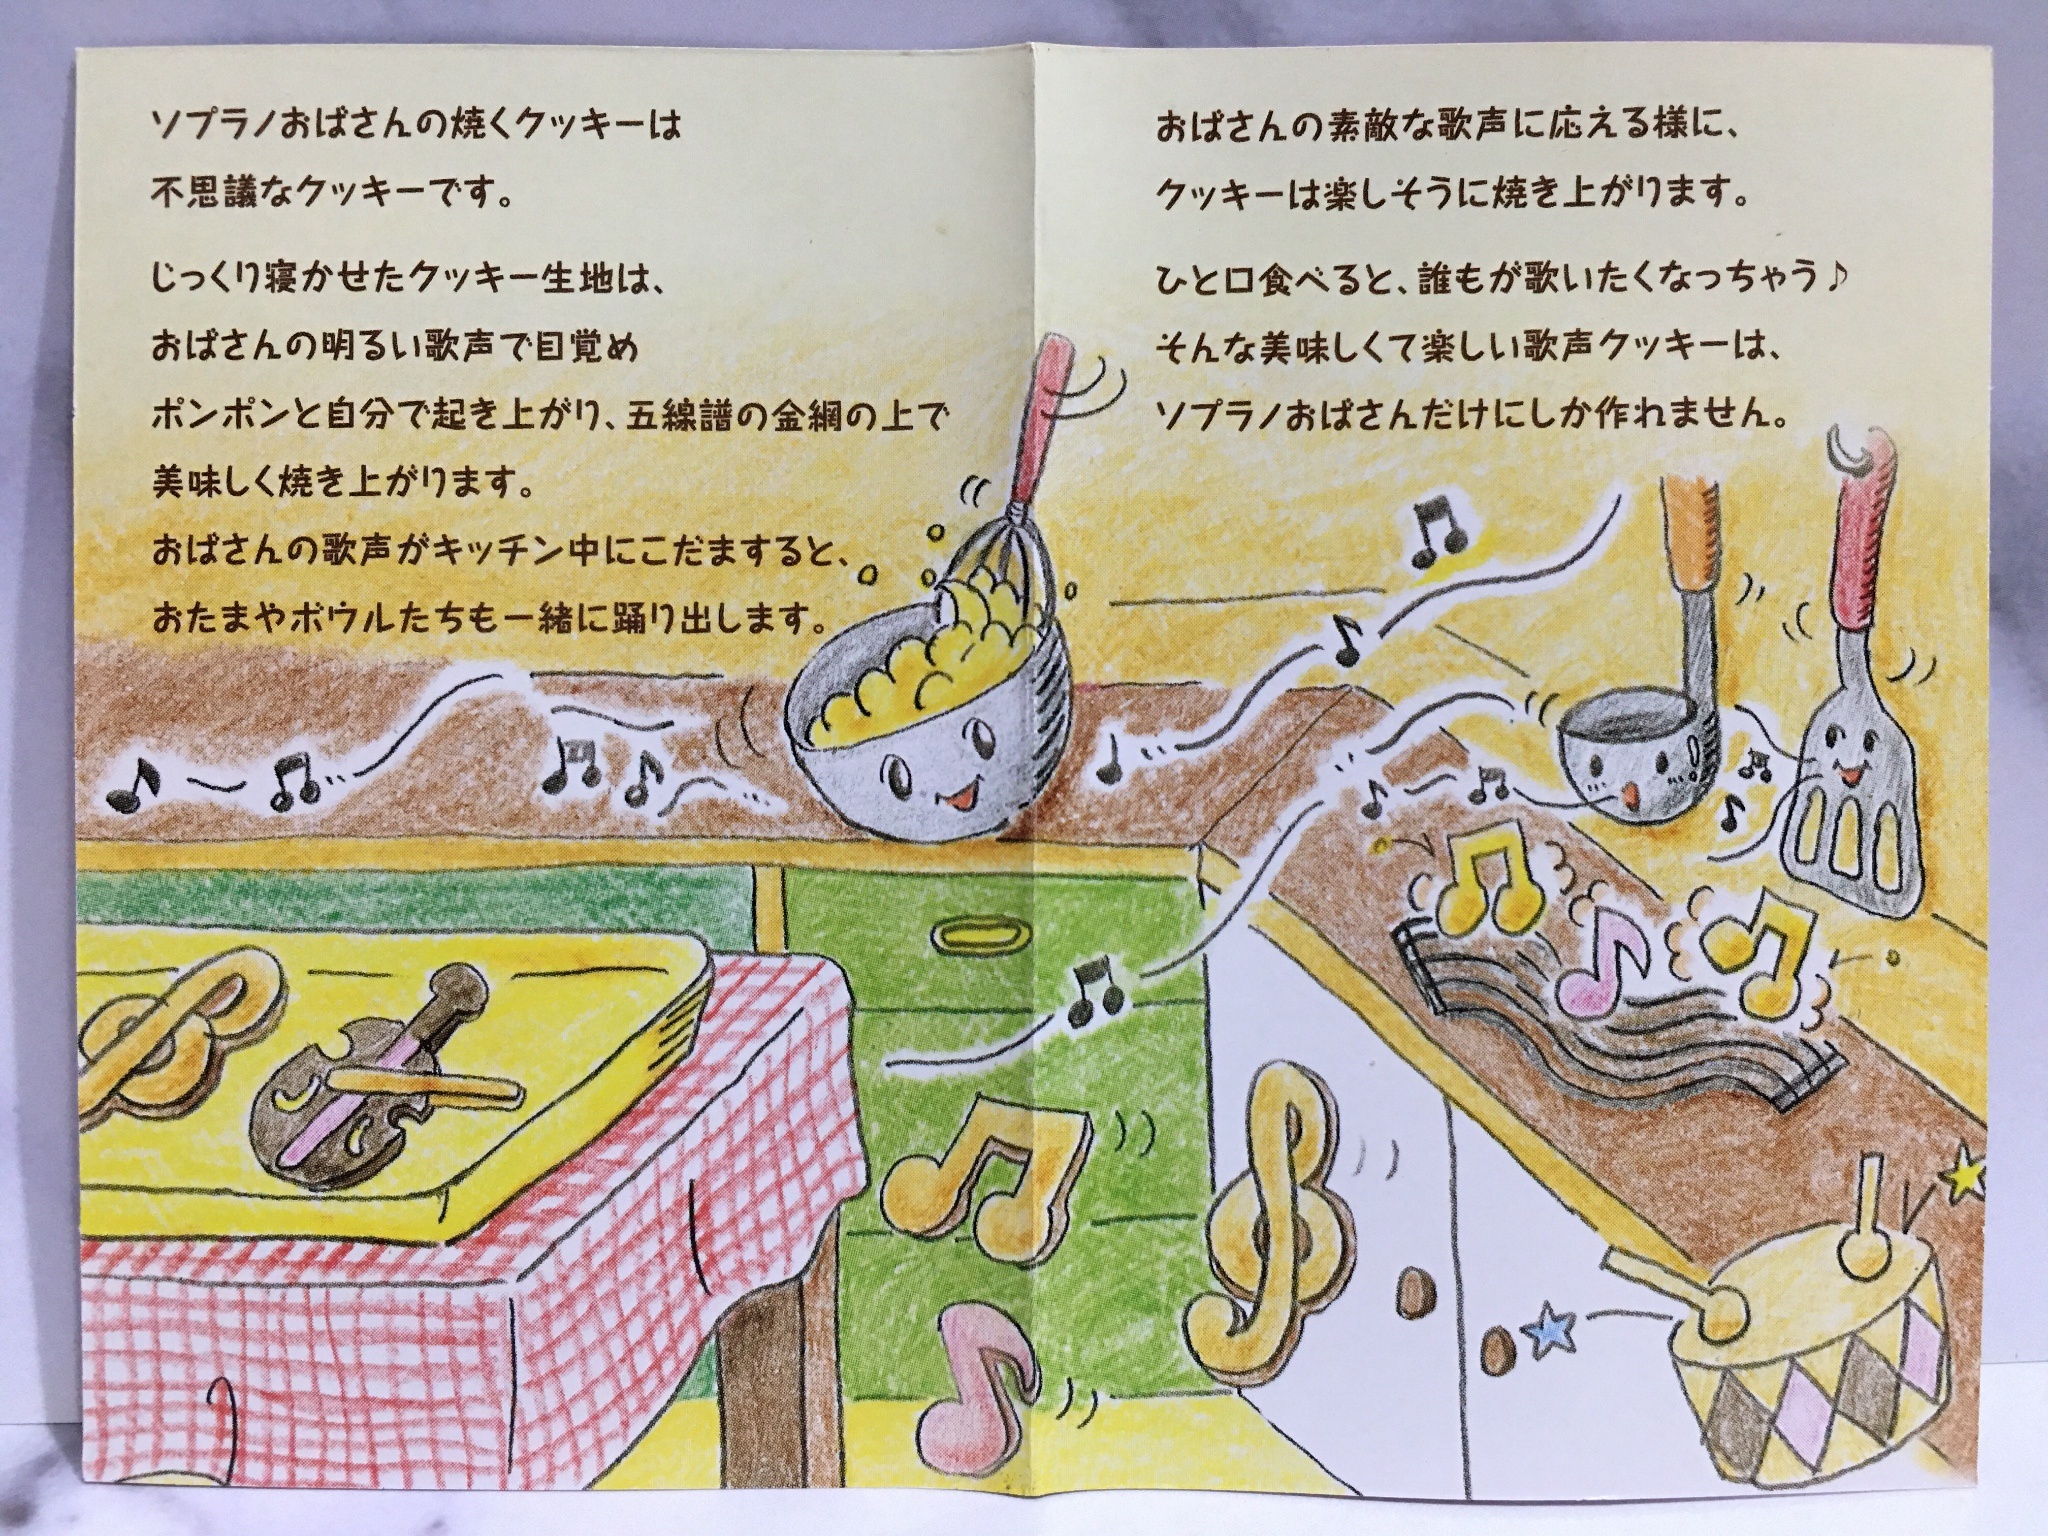 ソプラノおばさんの焼くクッキーは
不思議なクッキーです。
じっくり寝かせたクッキー生地は、
おばさんの明るい歌声で目覚め
ポンポンと自分で起き上がり、五線譜の金網の上で
美味しく焼き上がります。
おばさんの歌声がキッチン中にこだますると、
おたまやボウルたちも一緒に踊り出します。
おばさんの素敵な歌声に応える様に、
クッキーは楽しそうに焼き上がります。
ひと口食べると、誰もが歌いたくなっちゃう♪
そんな美味しくて楽しい歌声クッキーは、
ソプラノおばさんだけにしか作れません。